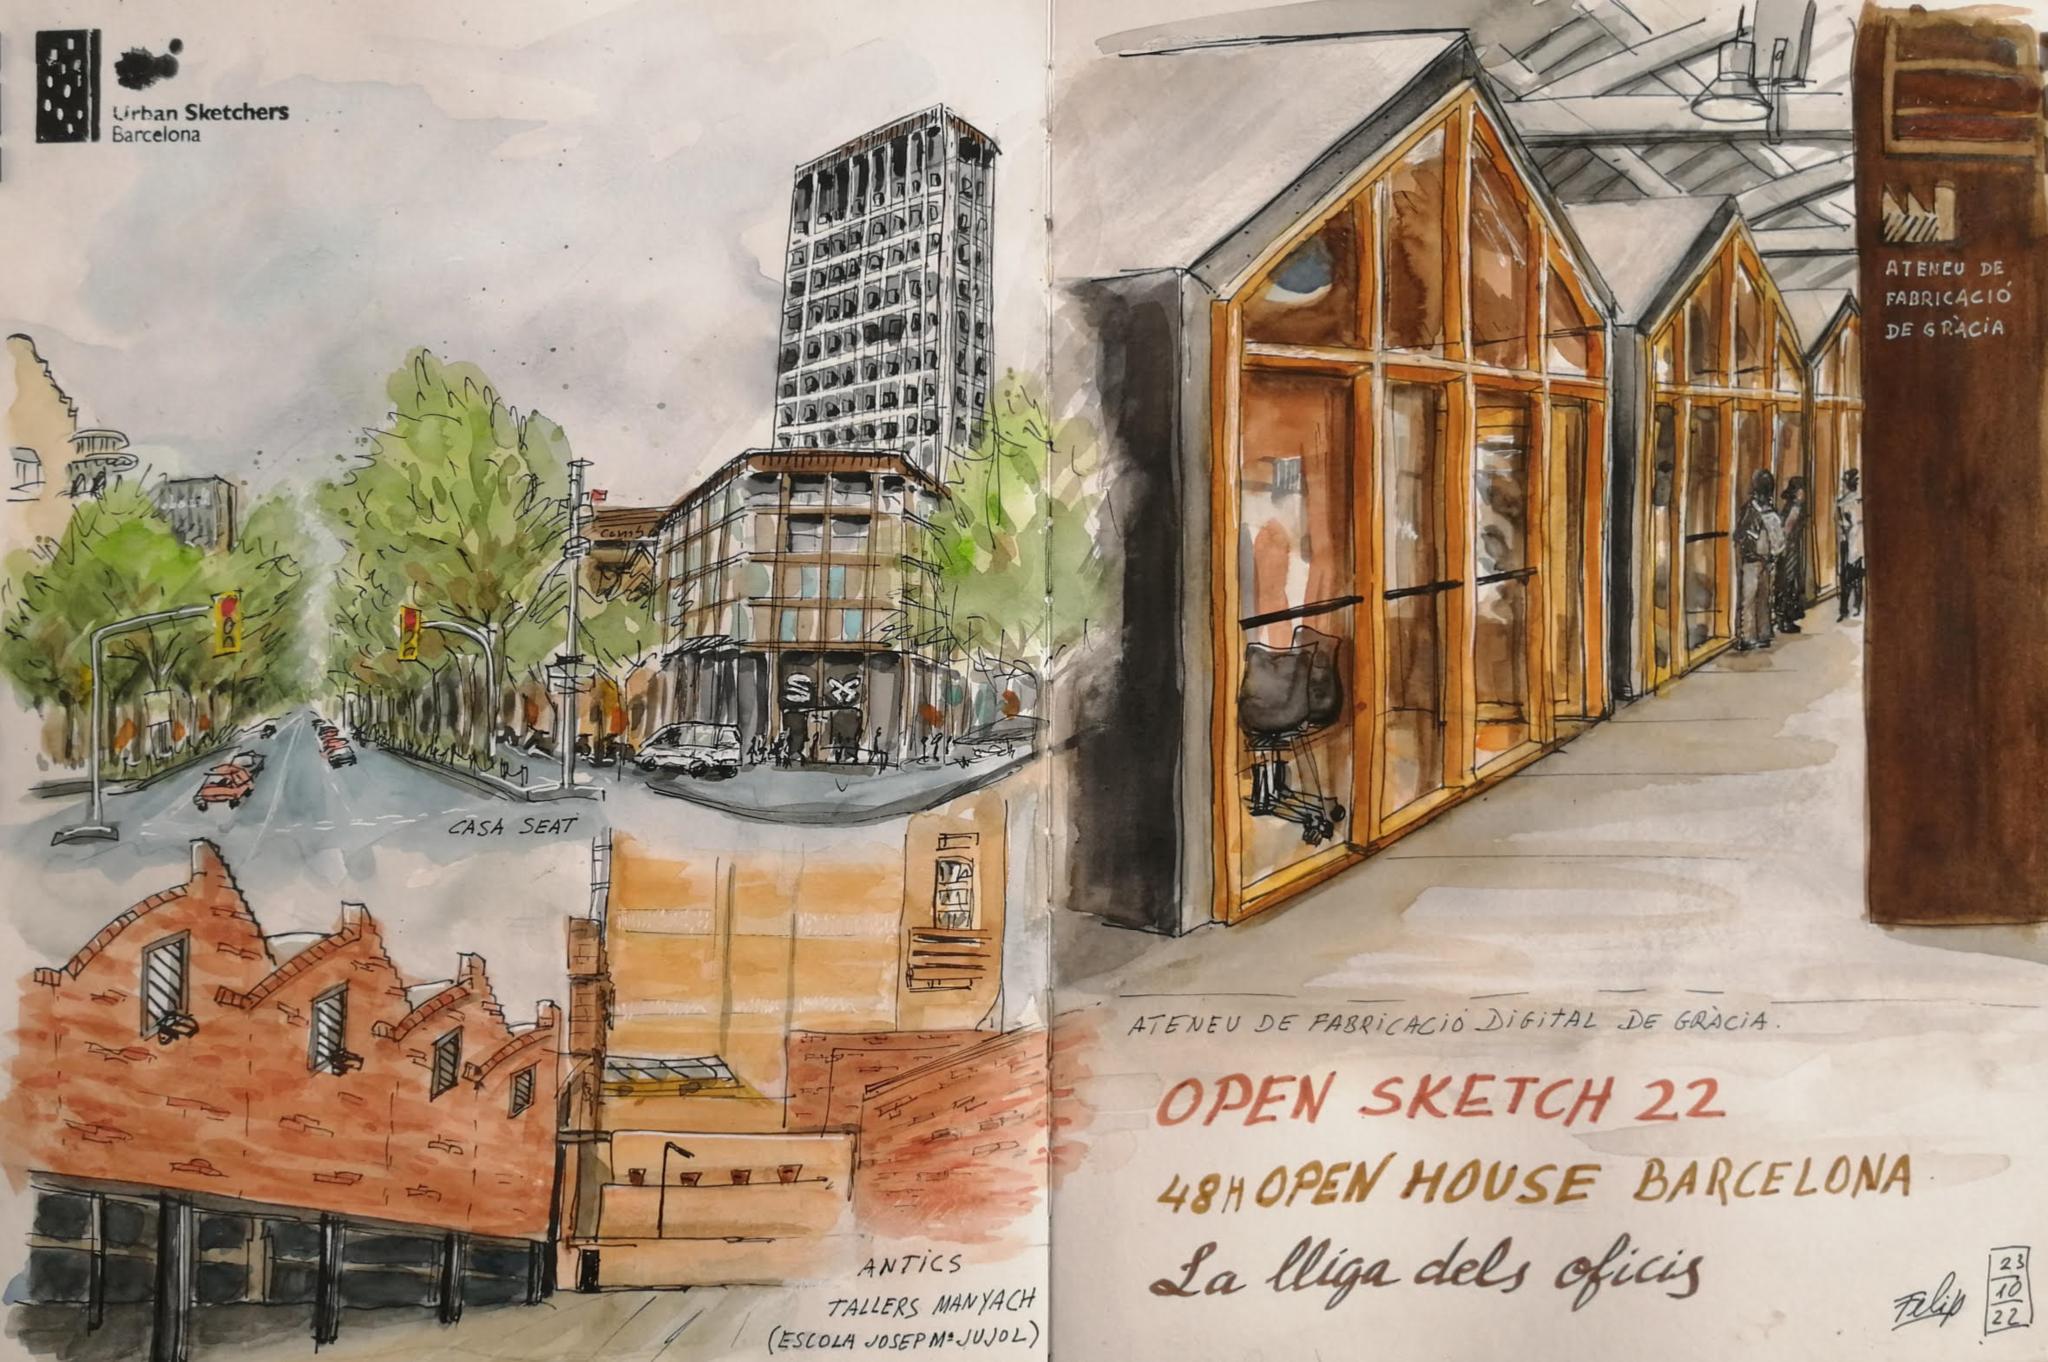 Urban Sketchers
Barcelona
CASA SEAT
ANTICS
TALLERS MANYACH
(ESCOLA JOSEP Mª JUJOL)
ATENEU DE
FABRICACIÓ
DE GRÀCIA
ATENEU DE FABRICACIÓ DIGITAL DE GRÀCIA.
OPEN SKETCH 22
48H OPEN HOUSE BARCELONA
La lliga dels oficis
Felip
23
10
22